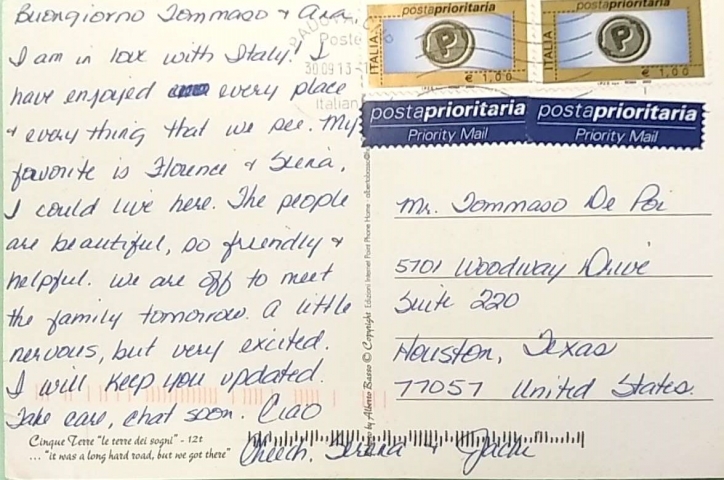 Buongiorno Tommaso + Ana
I am in love with Italy! I
have enjoyed every place
+ everything that we see. My
favorite is Florence + Siena.
I could live here. The people
are beautiful, so friendly +
helpful. we are off to meet
the family tomorrow. A little
nervous, but very excited.
I will keep you updated.
Take care, chat soon. Ciao
Cheech, Serena + Jacki
Cinque Terre "le terre dei sogni" - 12t
... "it was a long hard road, but we got there"
Poste
30.09.13
Italian
postaprioritaria
ITALIA
P
€ 1,00
postaprioritaria
ITALIA
P
€ 1,00
postaprioritaria
Priority Mail
postaprioritaria
Priority Mail
by Alberto Basso © Copyright Edizioni Internet Point Phone Home
Mr. Tommaso De Poi
5701 Woodway Drive
Suite 220
Houston, Texas
77057 United States.